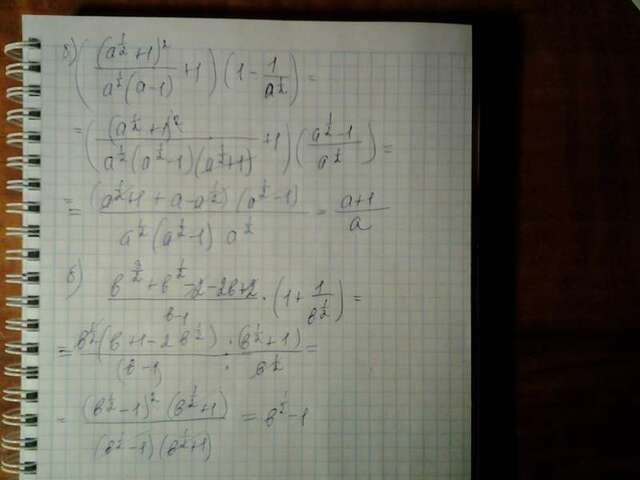 δ) ((a^{1/2}+1)^2 / (a^{1/2}(a-1)) + 1) (1 - 1/a^{1/2}) =
= ((a^{1/2}+1)^2 / (a^{1/2}(a^{1/2}-1)(a^{1/2}+1)) + 1) ((a^{1/2}-1) / a^{1/2}) =
= (a^{1/2}+1+a-a^{1/2}) (a^{1/2}-1) / (a^{1/2}(a^{1/2}-1) a^{1/2}) = (a+1)/a
в) (в^{3/2}+в^{1/2}-2-2в+2) / (в-1) · (1+ 1/в^{1/2}) =
= в^{1/2}(в+1-2в^{1/2}) / (в-1) · (в^{1/2}+1) / в^{1/2} =
= (в^{1/2}-1)^2 (в^{1/2}+1) / ((в^{1/2}-1)(в^{1/2}+1)) = в^{1/2}-1